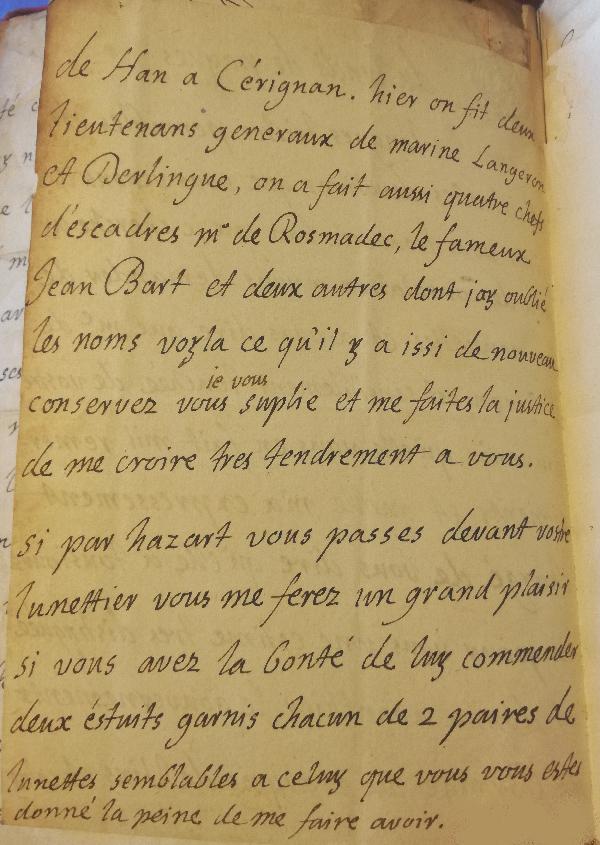 de Han a Cérignan. hier on fit deux
lieutenans generaux de marine Langeron
et Derlingue, on a fait aussi quatre chefs
d'éscadres mr de Rosmadec, le fameux
Jean Bart et deux autres dont joy oublié
les noms voyla ce qu'il y a issi de nouveau
je vous
conservez vous suplie et me faites la justice
de me croire tres tendrement a vous.
si par hazart vous passes devant vostre
lunettier vous me ferez un grand plaisir
si vous avez la bonté de luy commender
deux éstuits garnis chacun de 2 paires de
lunettes semblables a celuy que vous vous estes
donné la peine de me faire avoir.